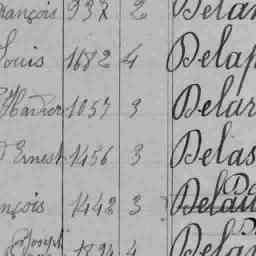 rançois 937 2 Delan
Louis 1682 4 Delap
1057 3 Delar
Ernest 1456 3 Delas
nçois 1442 3 Delau
Joseph 4 Dela